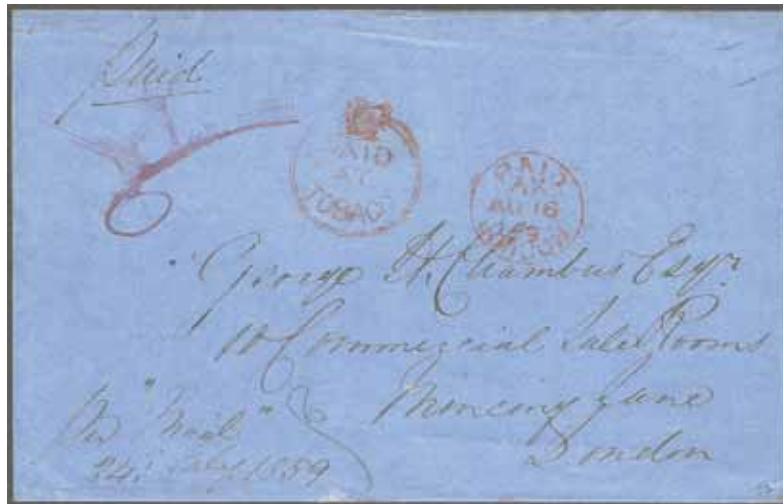 Paid
6
PAID
AT
TOBAGO
PAID
AX
AU 16
1859
George H. Chambers Esqr.
10 Commercial Sale Rooms
Mincing Lane
London
Per "Mail"
24. July 1859